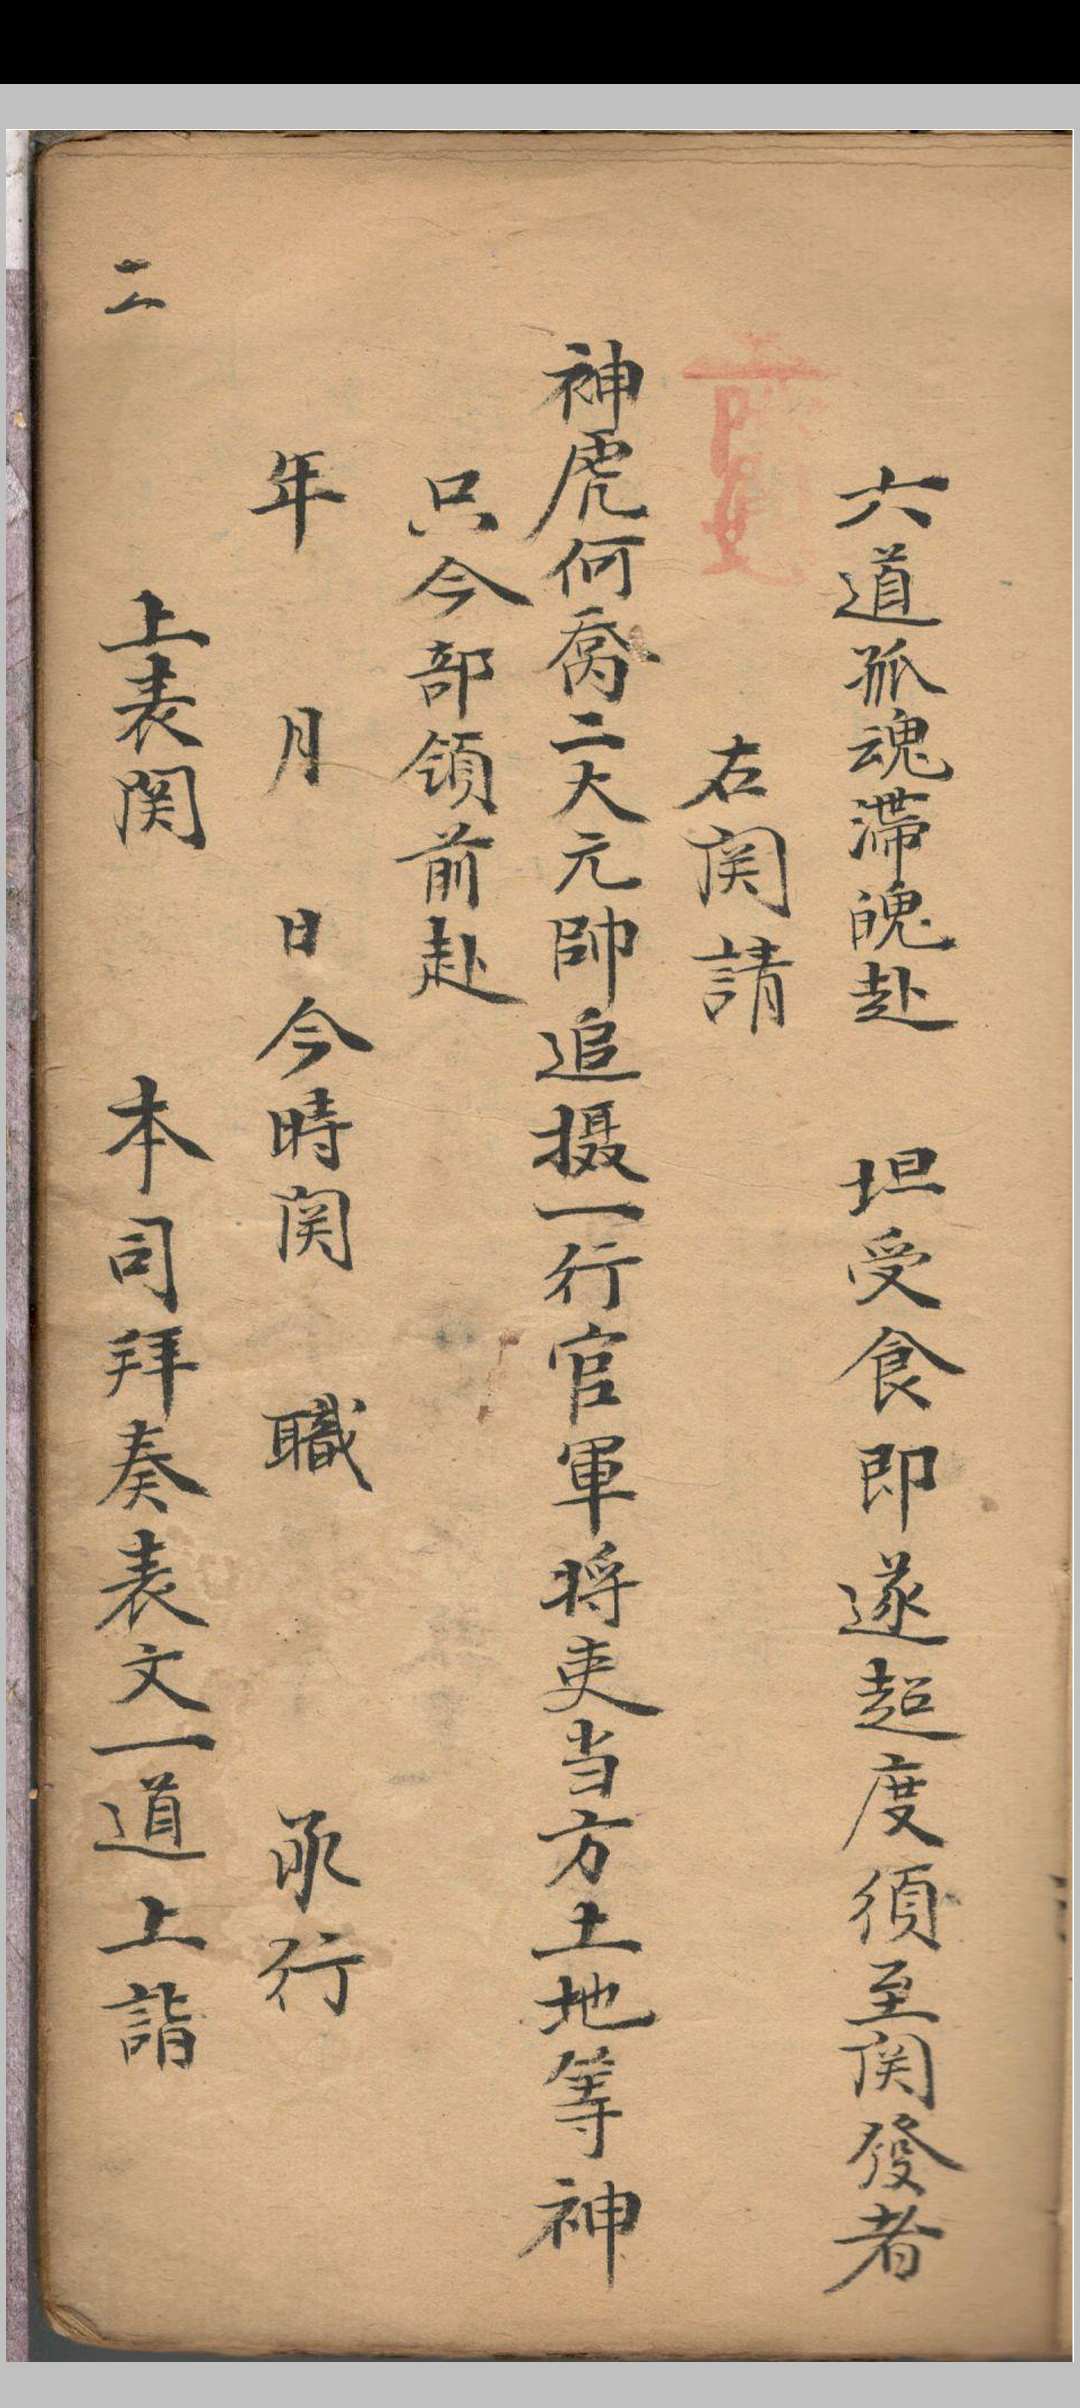 六道孤魂滯魄赴　坦受食即遂超度須至関發者
右関請
神虎何喬二大元帥追摄一行官軍将吏当方土地等神
只今部領前赴
年　月　日今時関　職　承行
上表関　本司拜奏表文一道上詣
二